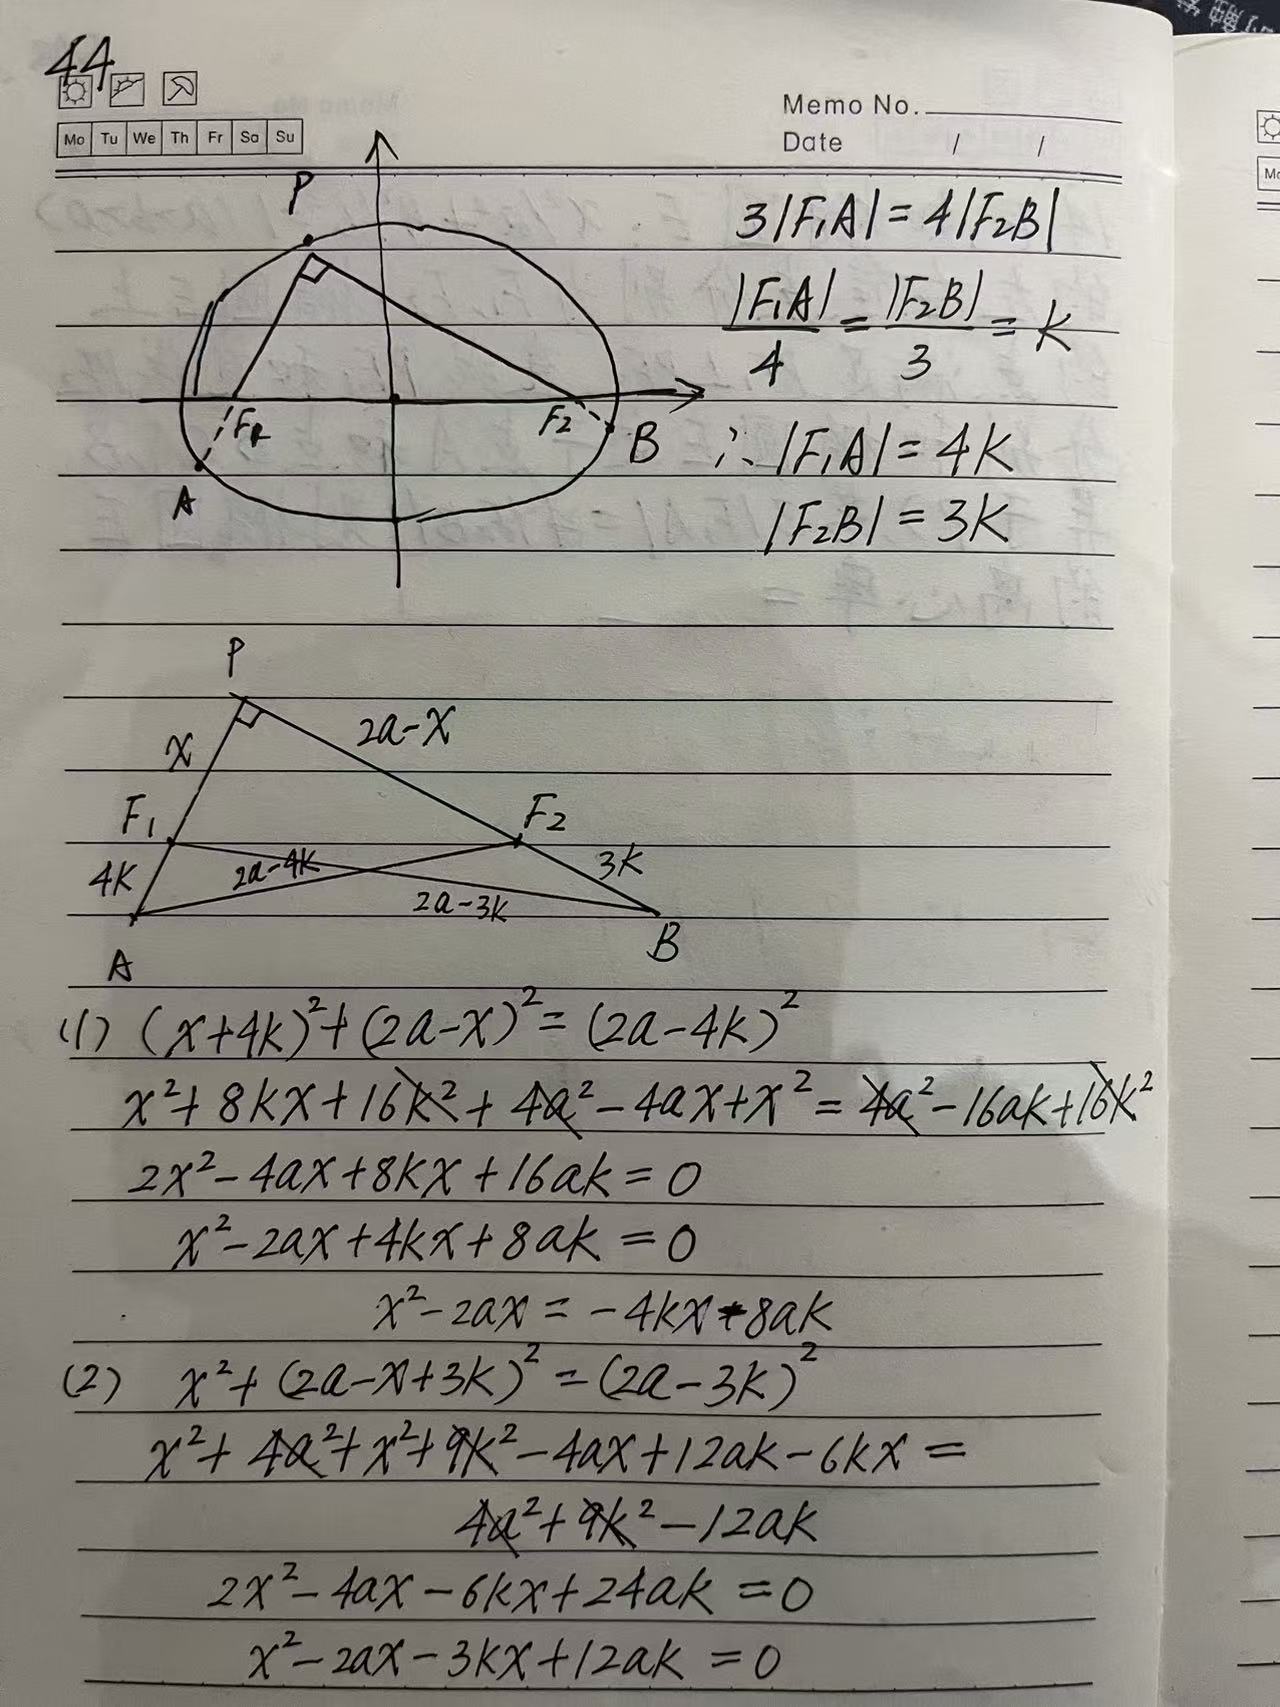 44
Mo Tu We Th Fr Sa Su
Memo No.
Date / /
P
3|F₁A| = 4|F₂B|
|F₁A|/4 = |F₂B|/3 = K
F₁ F₂ B
A
∴ |F₁A| = 4K
|F₂B| = 3K
P
x 2a-x
F₁ F₂
4K 2a-4K 3K
2a-3K
A B
(1) (x+4k)²+(2a-x)² = (2a-4k)²
x²+8kx+16k²+4a²-4ax+x² = 4a²-16ak+16k²
2x²-4ax+8kx+16ak=0
x²-2ax+4kx+8ak=0
x²-2ax = -4kx-8ak
(2) x²+(2a-x+3k)²=(2a-3k)²
x²+4a²+x²+9k²-4ax+12ak-6kx =
4a²+9k²-12ak
2x²-4ax-6kx+24ak=0
x²-2ax-3kx+12ak=0